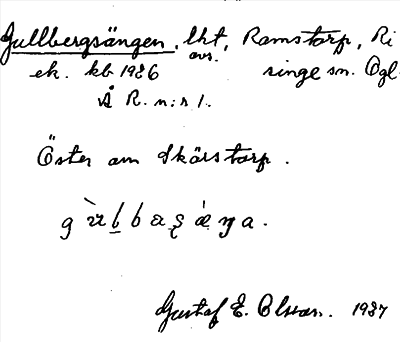 Gullbergsängen, lht, Ramstorp, Ri
avs.
ek. kb 1926 singe sn. Ögl.
Å R. n:r 1.
Öster om Skärstorp.
Gustaf E. Olsson. 1937